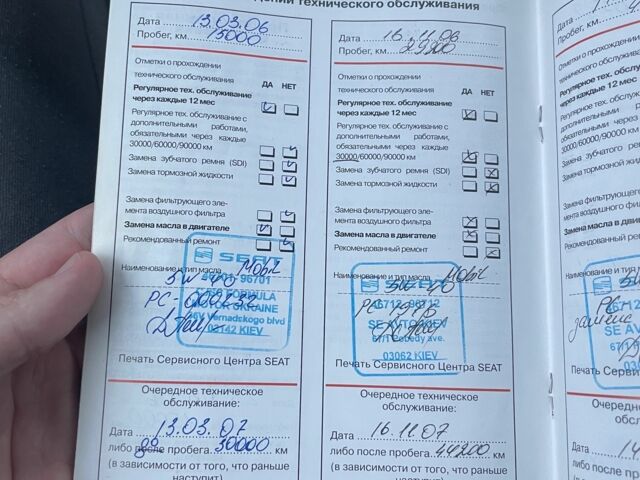 технического обслуживания
Дата 13.03.06
Пробег, км 15000
Отметки о прохождении
технического обслуживания ДА НЕТ
Регулярное тех. обслуживание
через каждые 12 мес
Регулярное тех. обслуживание с
дополнительными работами,
обязательными через каждые
30000/60000/90000 км
Замена зубчатого ремня (SDI)
Замена тормозной жидкости
Замена фильтрующего эле-
мента воздушного фильтра
Замена масла в двигателе
Рекомендованный ремонт
SEAT
Наименование и тип масла Mobil
5W40
FORMULA
UKRAINE
Vernadskogo blvd
03142 KIEV
Печать Сервисного Центра SEAT
Очередное техническое
обслуживание:
Дата 13.03.07
либо после пробега 30000 км
(в зависимости от того, что раньше
наступит)
Дата 16.11.06
Пробег, км 29200
Отметки о прохождении
технического обслуживания ДА НЕТ
Регулярное тех. обслуживание
через каждые 12 мес
Регулярное тех. обслуживание с
дополнительными работами,
обязательными через каждые
30000/60000/90000 км
Замена зубчатого ремня (SDI)
Замена тормозной жидкости
Замена фильтрующего эле-
мента воздушного фильтра
Замена масла в двигателе
Рекомендованный ремонт
Наименование и тип масла Mobil
03062 KIEV
Печать Сервисного Центра SEAT
Очередное техническое
обслуживание:
Дата 16.11.07
либо после пробега 44200 км
(в зависимости от того, что раньше
Дата
Пробег, км
Отметки о прохождении
технического обслуживания
через каждые 12 мес
Замена зубчатого
Замена тормозной
Замена фильтрующего
мента воздушного
Замена масла в
Рекомендованный
Наименование и тип
Печать Сервисного
Дата
либо после
(в зависимости